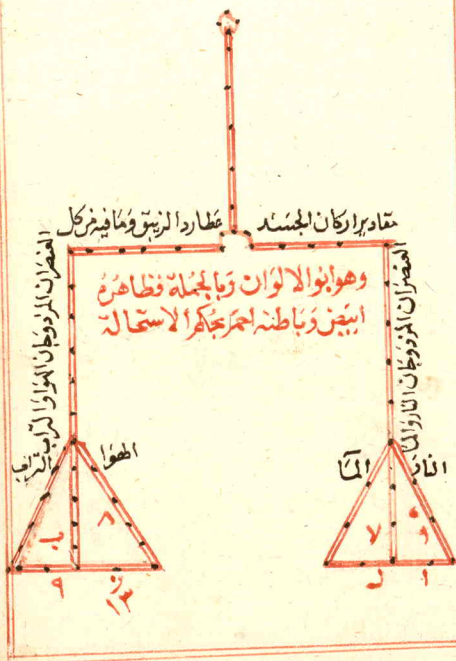 مقادير اركان الجسد
عطارد الزيبق وما فيه من كل
وهو ابو الالوان وبالجملة فظاهره
ابيض وباطنه احمر بحكم الاستحالة
العنصران المزدوجان النار والما
العنصران المزدوجان الهوا والتراب
النار
المآ
الهوا
التراب
٩
١٣